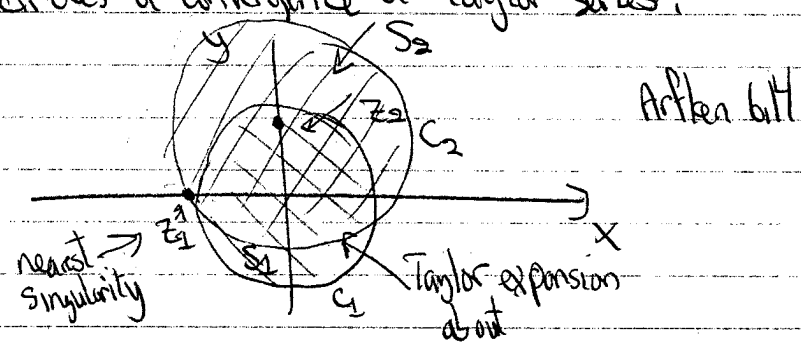 circles of convergence of Taylor series.
y
S2
Arfken 6.14
Z2
C2
x
Z1
nearest
singularity
S1
C1
Taylor expansion
about